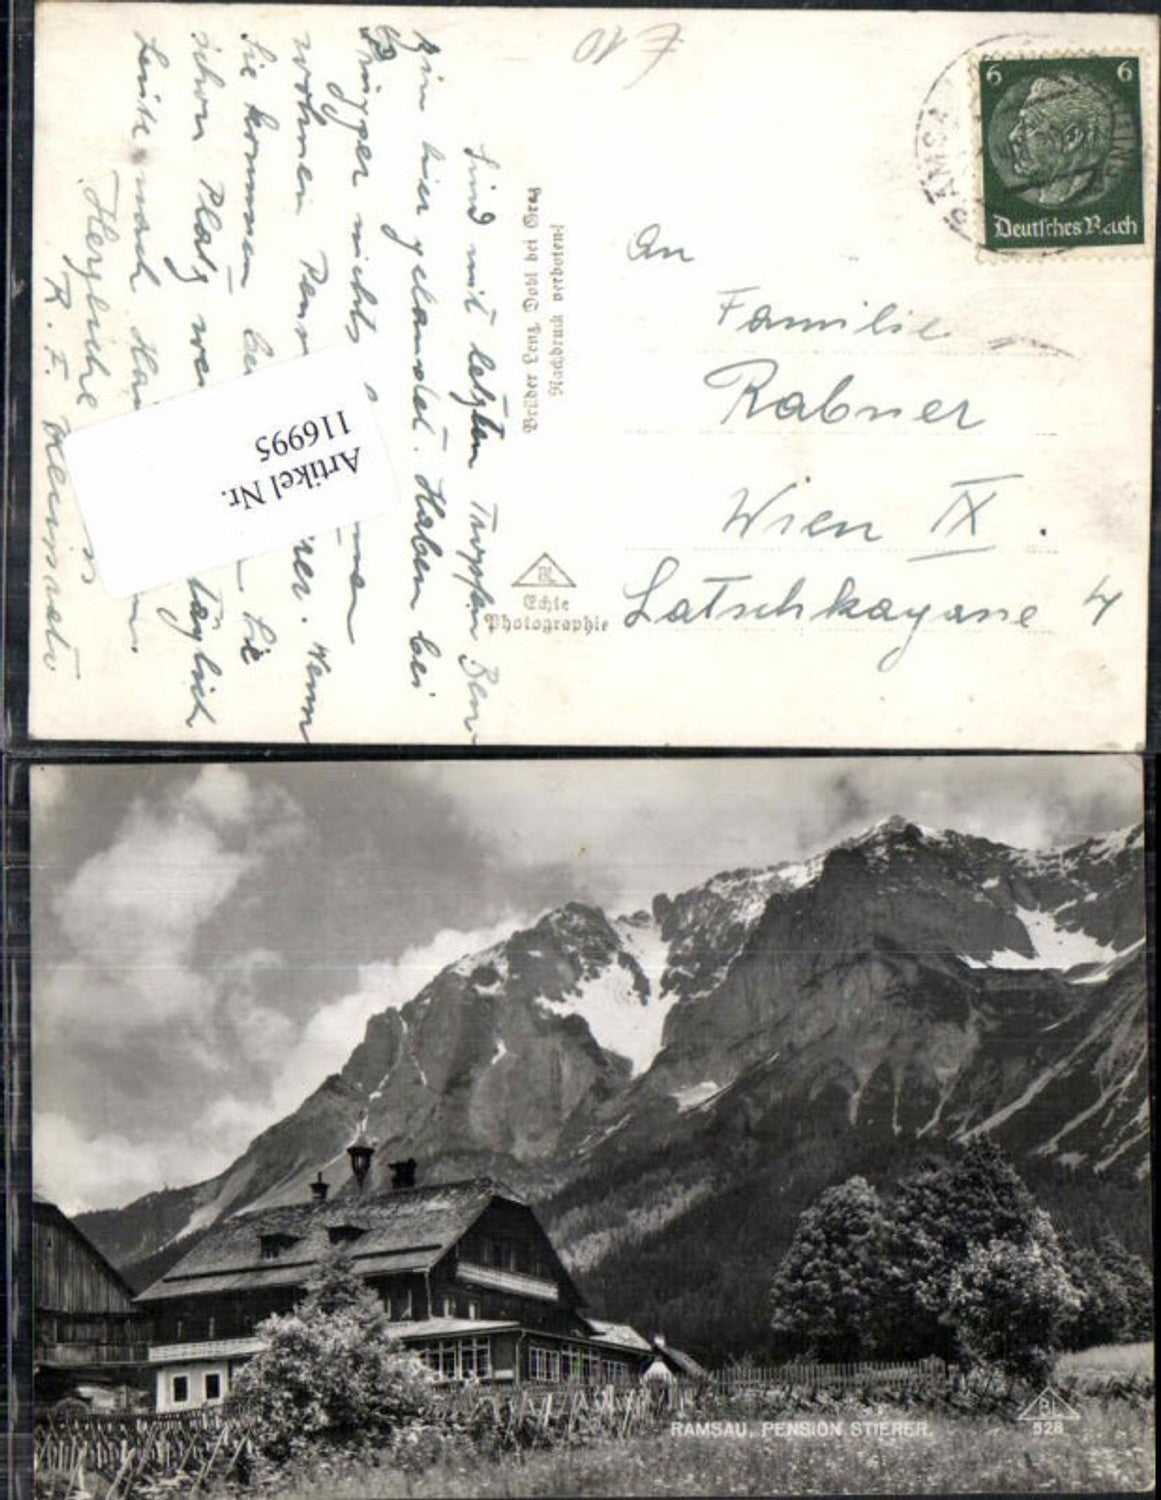 £ 10
6 6
Deutsches Reich
RAMSA
An
Familie
Rabner
Wien IX.
Latschkagasse 4
Brüder Lenz, Dobl bei Graz
Nachdruck verboten!
BL
Echte
Photographie
Sind mit letzten Tropfen Ben-
zin hier gelandet. Haben bei
nichts
wohnen Pens rer. Wenn
Sie kommen Sie
schon Platz täglich
Leute nach
Herzliche
R. F.
Artikel Nr.
116995
RAMSAU, PENSION STIERER.
BL
528